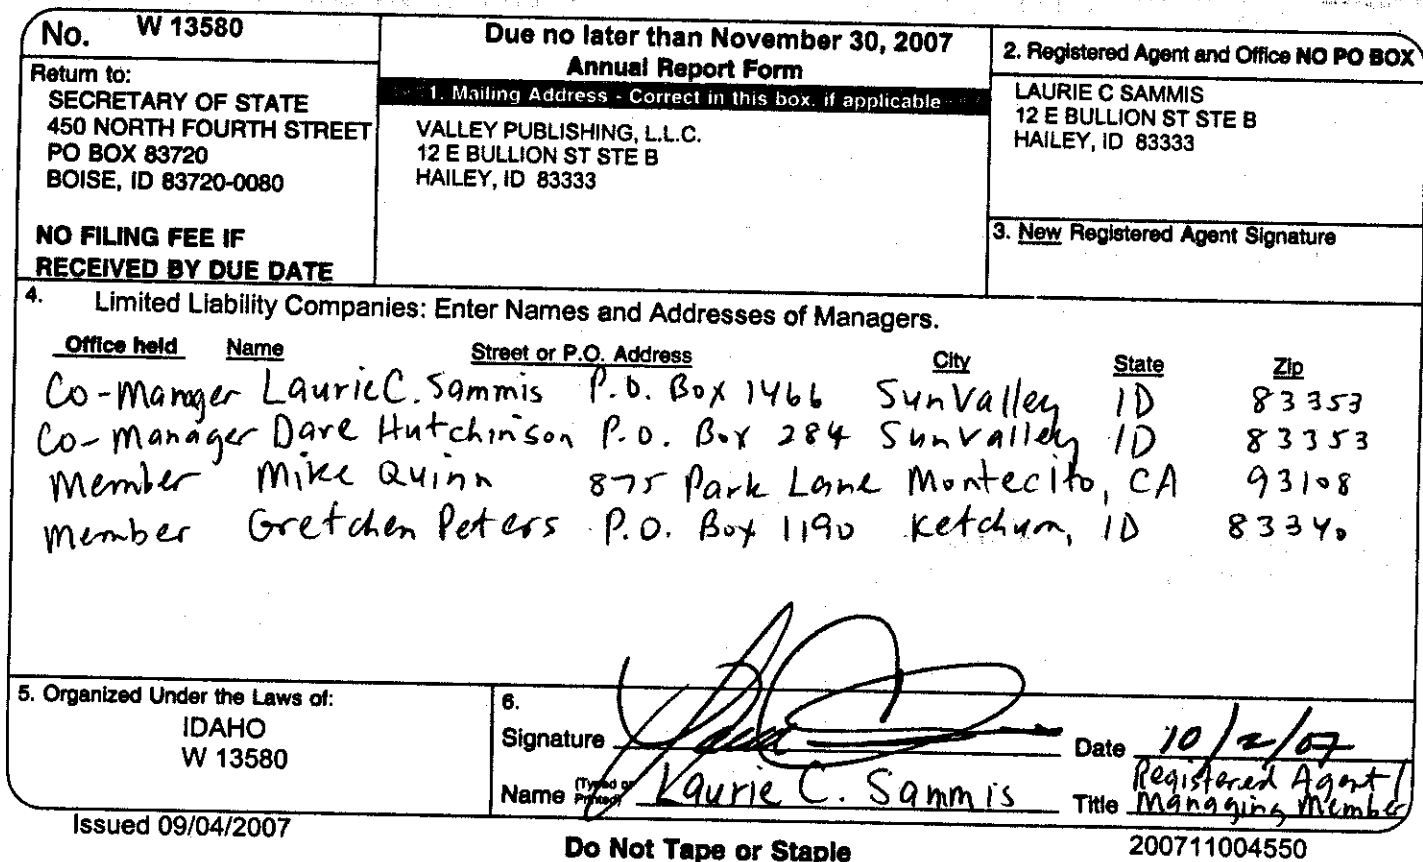 No. W 13580
Return to:
SECRETARY OF STATE
450 NORTH FOURTH STREET
PO BOX 83720
BOISE, ID 83720-0080
NO FILING FEE IF
RECEIVED BY DUE DATE
Due no later than November 30, 2007
Annual Report Form
1. Mailing Address - Correct in this box. if applicable
VALLEY PUBLISHING, L.L.C.
12 E BULLION ST STE B
HAILEY, ID 83333
2. Registered Agent and Office NO PO BOX
LAURIE C SAMMIS
12 E BULLION ST STE B
HAILEY, ID 83333
3. New Registered Agent Signature
4. Limited Liability Companies: Enter Names and Addresses of Managers.
Office held Name Street or P.O. Address City State Zip
Co-Manager Laurie C. Sammis P.O. Box 1466 Sun Valley ID 83353
Co-Manager Dave Hutchinson P.O. Box 284 Sun Valley ID 83353
Member Mike Quinn 875 Park Lane Montecito, CA 93108
Member Gretchen Peters P.O. Box 1190 Ketchum, ID 83340
5. Organized Under the Laws of:
IDAHO
W 13580
6.
Signature
Date 10/2/07
Name (Typed or Printed) Laurie C. Sammis
Title Registered Agent / Managing Member
Issued 09/04/2007
Do Not Tape or Staple
200711004550